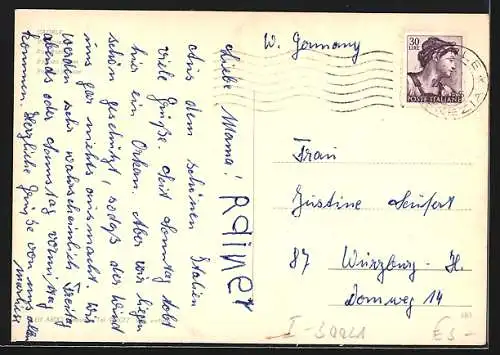 Liebe Mama!
Aus dem schönen Italien
viele Grüße. Seit Sonntag tobt
hier ein Orkan. Aber wir liegen
schön geschützt, sodaß der Wind
uns gar nichts ausmacht. Wir
werden sehr wahrscheinlich Freitag
abends oder Samstag vormittag
kommen. Herzliche Grüße von uns allen
Rainer
W. Germany
30
LIRE
POSTE ITALIANE
Frau
Justine Seifert
87 Würzburg - H.
Domweg 14